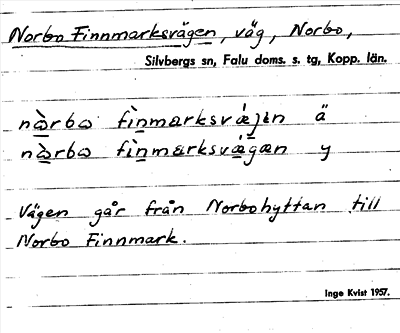 Norbo Finnmarksvägen, väg, Norbo,
Silvbergs sn, Falu doms. s. tg, Kopp. län.
nòrbo fìnmarksvǽjen ä
nòrbo fìnmarksvǽgæn y
Vägen går från Norbohyttan till
Norbo Finnmark.
Inge Kvist 1957.